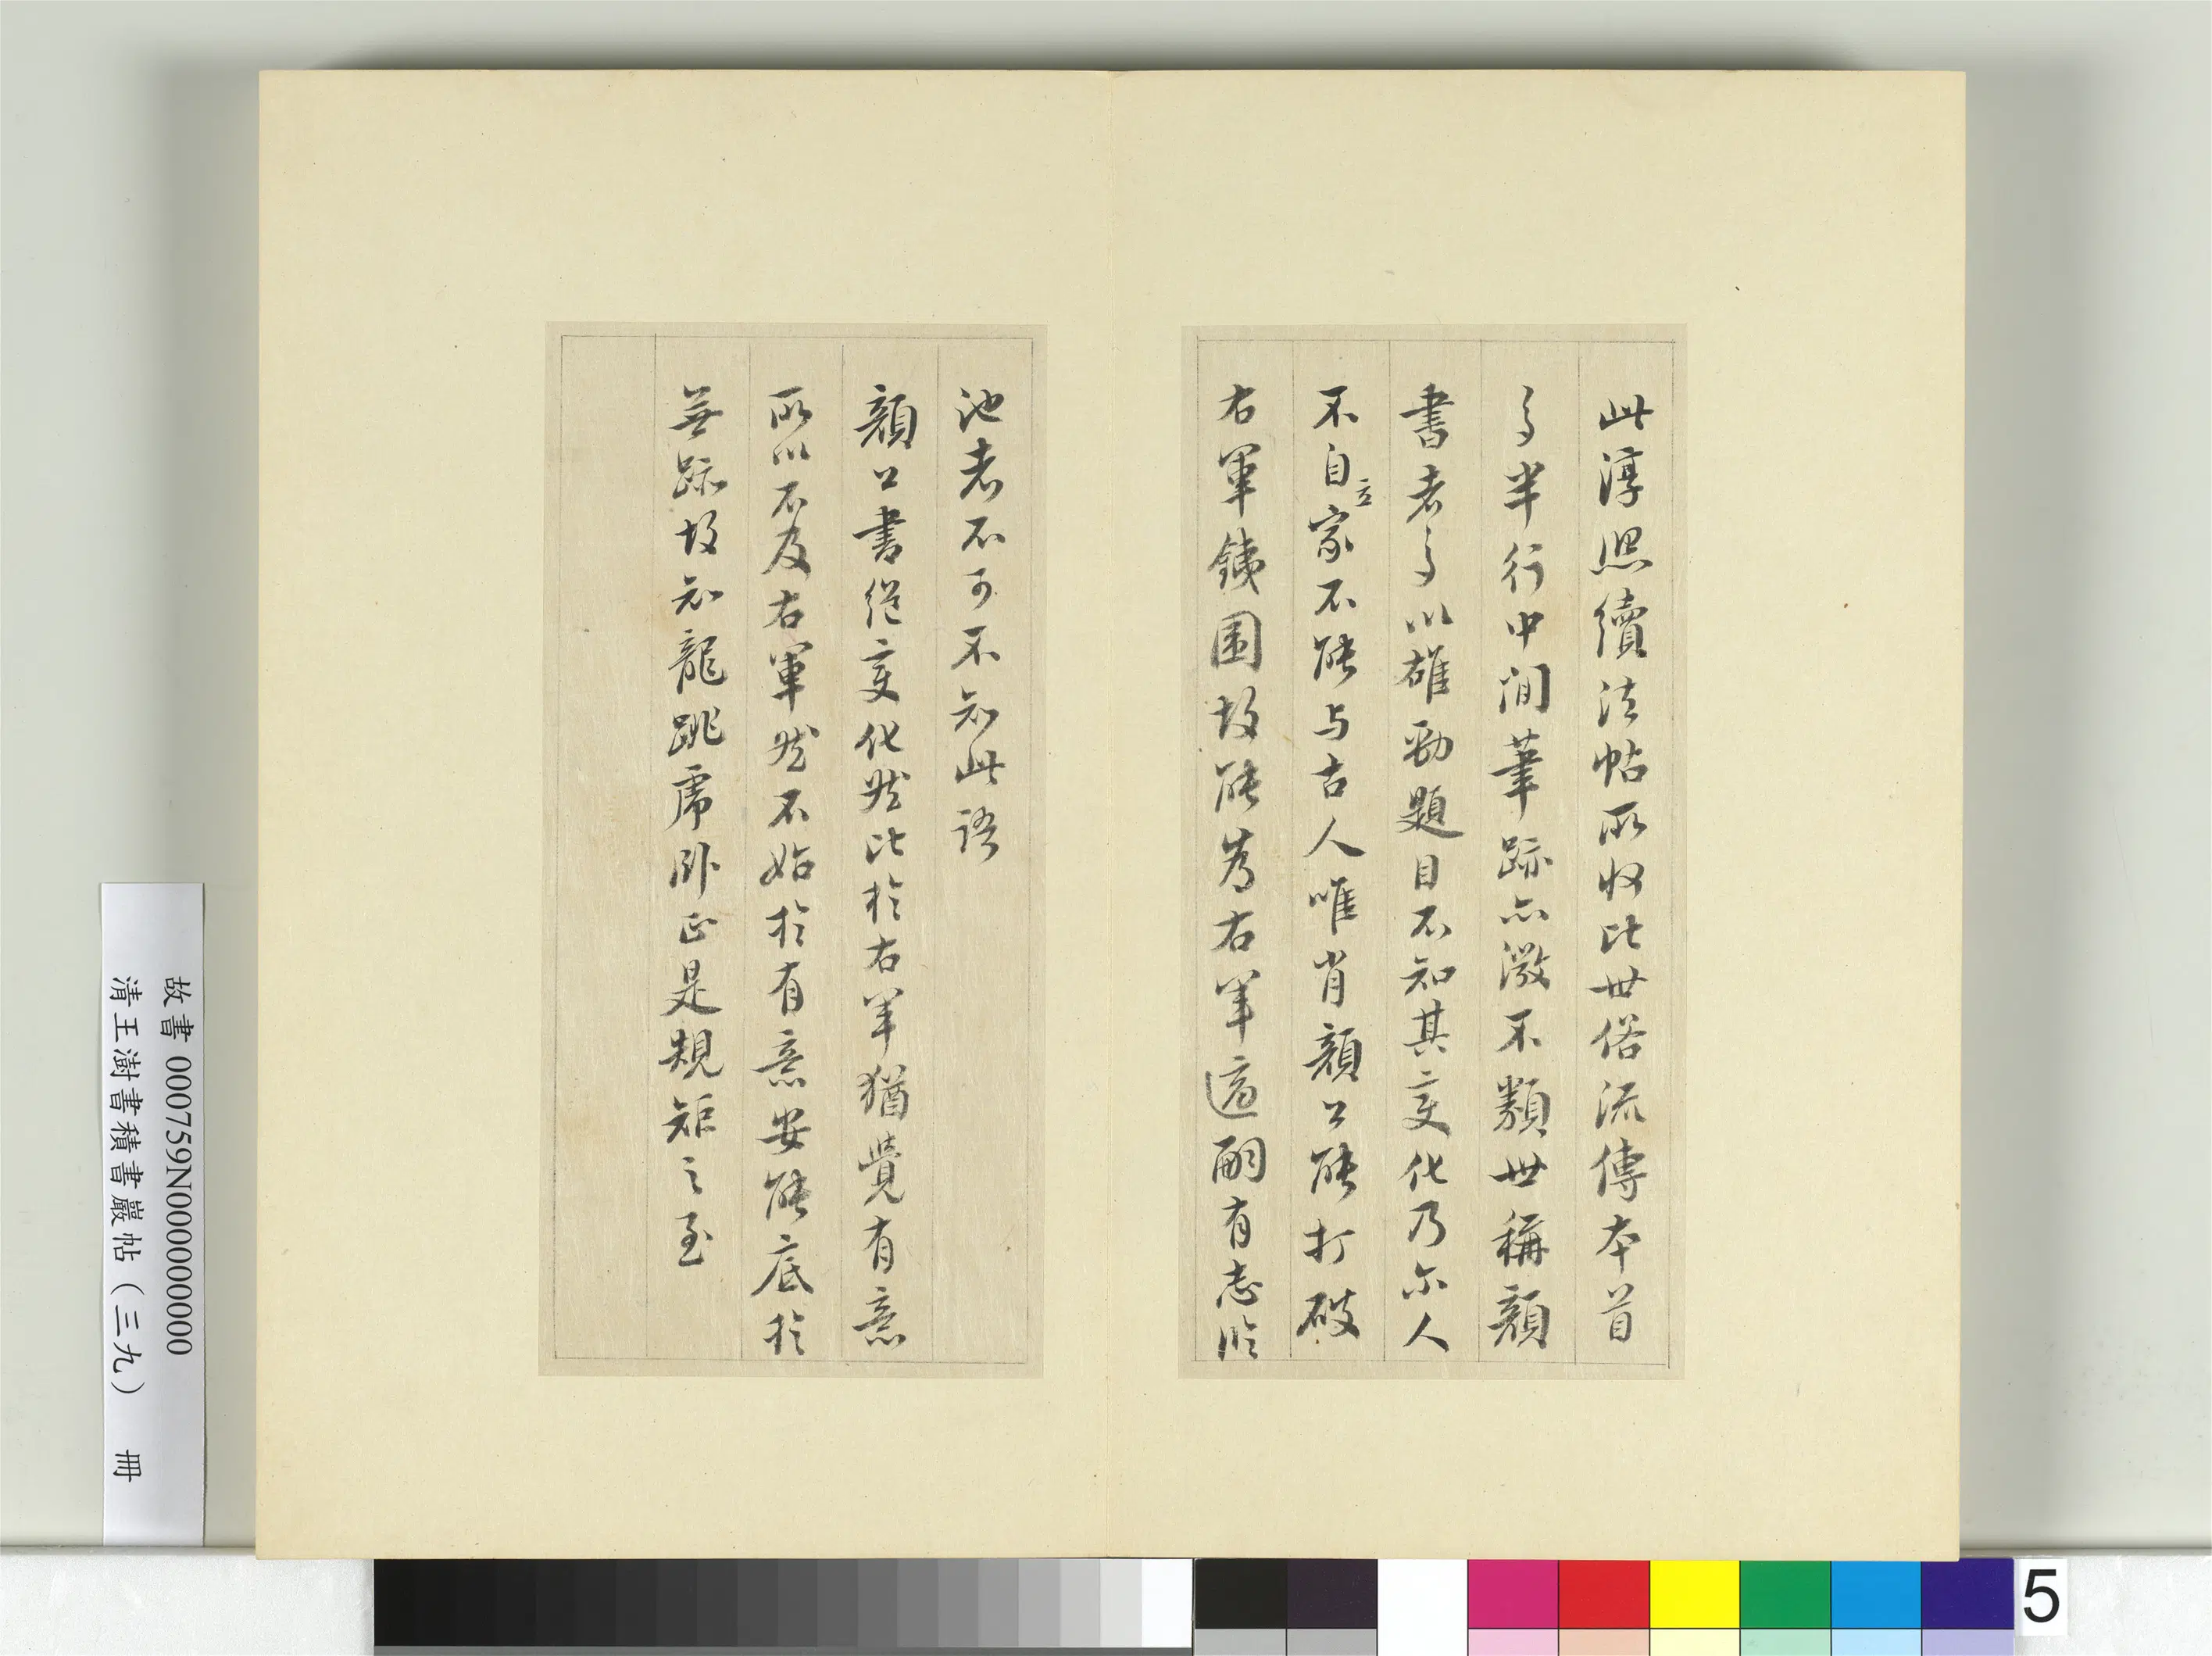 此淳熙續法帖所收比世俗流傳本首
多半行中間筆跡亦微不類世稱顏
書者多以雄勁題目不知其變化乃尔人
不自立家不能与古人唯肖顏公能打破
右軍鐵圍故能為右軍適嗣有志臨
池者不可不知此語
顏公書絕變化然比於右軍猶覺有意
所以不及右軍然不始於有意安能底於
無跡故知龍跳虎臥正是規矩之至
故書 000759N000000000
清王澍書積書巖帖（三九） 冊
5